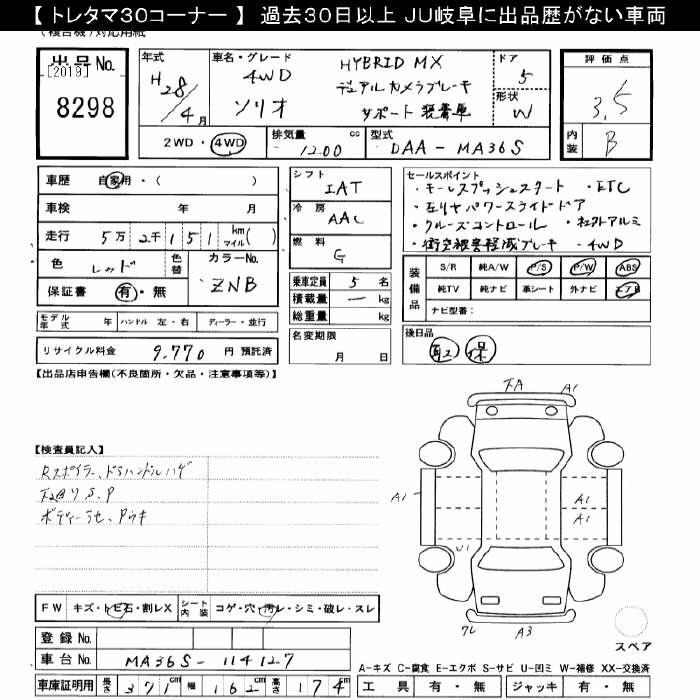 【 トレタマ30コーナー 】 過去30日以上 JU岐阜に出品歴がない車両
(複合機)対応用紙
出品 No.
[2019]
8298
年式 車名・グレード ドア
H28/4月 4WD ソリオ
HYBRID MX
デュアルカメラブレーキ
サポート装着車
5
形状
W
2WD・4WD 排気量 1200 cc 型式 DAA-MA36S
評価点
3.5
内装 B
車歴 自家用・( )
車検 年 月
走行 5万 2千 1 5 1 km マイル( )
色 レッド 色替 カラーNo. ZNB
保証書 有・無
シフト IAT
冷房 AAC
燃料 G
乗車定員 5 名
積載量 ー kg
総重量 kg
名変期限
月 日
セールスポイント
・キーレスプッシュスタート ・ETC
・左リヤパワースライドドア
・クルーズコントロール ・社外アルミ
・衝突被害軽減ブレーキ ・4WD
装備品
S/R 純A/W P/S P/W ABS
純TV 純ナビ 革シート 外ナビ エアB
ナビ型番:
モデル年式 年 ハンドル 左・右 ディーラー・並行
リサイクル料金 9,770 円 預託済
後日品
取 保
【出品店申告欄(不良箇所・欠品・注意事項等)】
【検査員記入】
Rスポイラー、ドSハンドルハゲ
S.P
FA
A1
A1
A1
A1
U1
A3
スペア
FW キズ・トビ石・割レX シート内装 コゲ・穴・汚レ・シミ・破レ・スレ
登録 No.
車台 No. MA36S-114127
車庫証明用 長さ 371cm 幅 162cm 高さ 174cm
A-キズ C-腐食 E-エクボ S-サビ U-凹ミ W-補修 XX-交換済
工具 有・無 ジャッキ 有・無